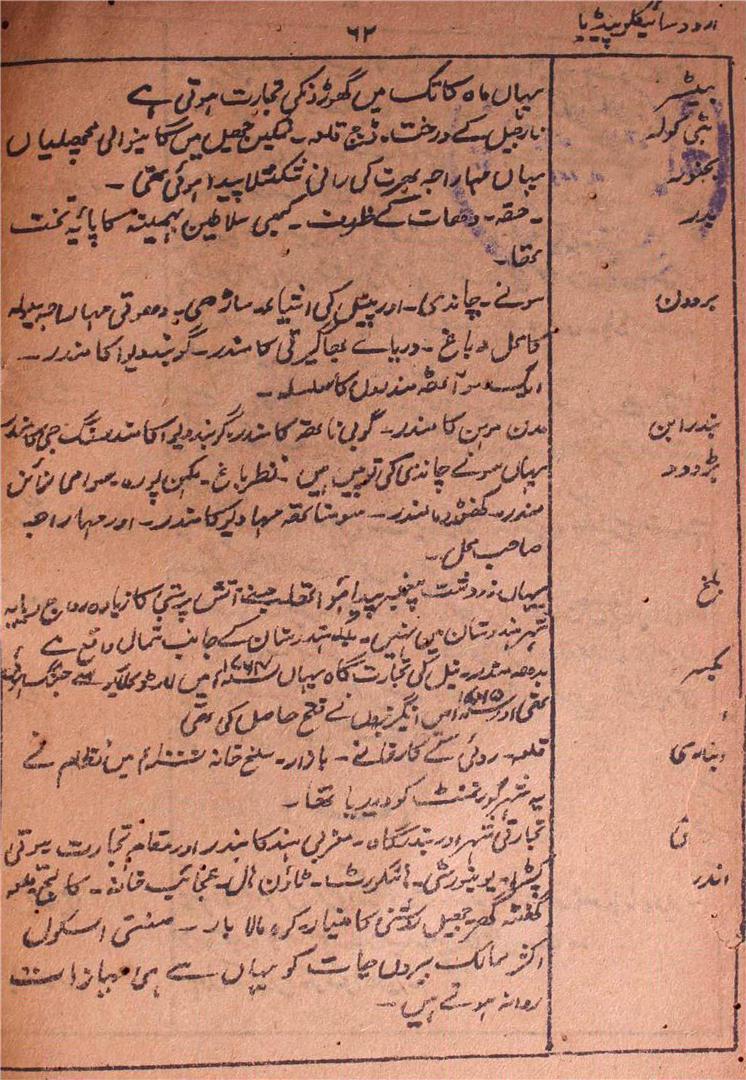 اردو سائیکلوپیڈیا
۶۲
بٹیشر یہاں ماہ کاتک میں گھوڑونکی تجارت ہوتی ہے
بٹی کولہ نارجیل کے درخت۔ ڈچ قلعہ۔ نمکین جھیل میں گانیوالی مچھلیاں
بجنور یہاں مہاراجہ بھرت کی رانی شکنتلا پیدا ہوئی تھی۔
بیدر حقہ۔ دھات کے ظروف۔ کبھی سلاطین بہمینہ کا پائیہ تخت
تھا۔
بردوان سونے۔ چاندی۔ اور پیتل کی اشیاء ساڑھی۔ دھوتی مہاراجہ
کا محل و باغ۔ دریائے بھاگیرتی کا مندر۔ گوبند دیو کا مندر۔
ایک سو آٹھ مندروں کا سلسلہ۔
بندرابن مدن موہن کا مندر۔ گوپی ناتھ کا مندر گوبند دیو کا مندر
بڑودہ یہاں سونے چاندی کی توپیں ہیں۔ نظر باغ۔ مکن پورہ۔ سوامی نرائن
مندر۔ مندر۔ مہادیو کا مندر۔ اور مہاراجہ
صاحب محل۔
بلخ یہاں زردشت پیغمبر پیدا ہوا تھا آتش پرستی کا زیادہ رواج ہے یہ
شہر ہندوستان میں نہیں۔ بلکہ ہندوستان کے جانب شمال واقع ہے
بکسر بدھ مندر۔ نیل کی تجارت گاہ یہاں میں سے جنگ ہوئی
تھی اور میں انگریزوں نے فتح حاصل کی تھی
قلعہ۔ روئی کے کارخانے۔ بازار۔ سلح خانہ میں نظام نے
یہ شہر گورنمنٹ کو دیدیا تھا۔
تجارتی شہر اور بندرگاہ۔ مغربی ہند کا بندر اور مقام تجارت سوتی
کپڑا۔ یونیورسٹی۔ ہائیکورٹ۔ ٹاؤن ہال۔ عجائب خانہ۔ کالج قلعہ
گھنٹہ گھر۔ جھیل روشنی کا مینار۔ کوہ مالا بار۔ صنعتی اسکول
اکثر ممالک بیرون جات کو یہاں سے ہی جہازات
روانہ ہوتے ہیں۔